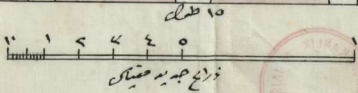 ١٥
١٠ ١ ٢ ٣ ٤ ٥ ١
ذراع جديد مقياسى